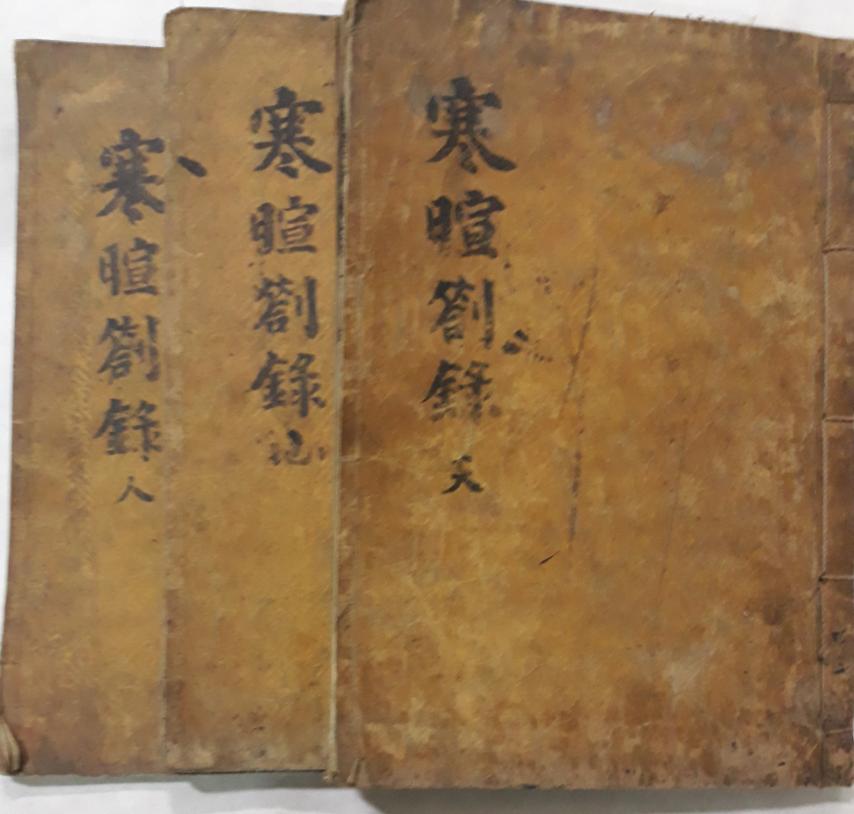 寒暄劄錄 天
寒暄劄錄 地
寒暄劄錄 人